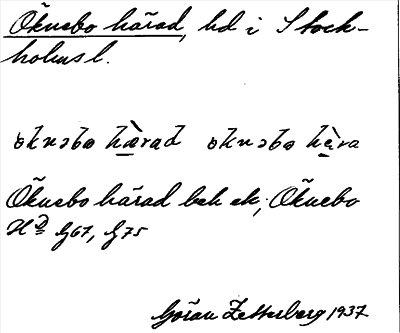 Öknebo härad, hd i Stock-
holms l.
öknəbo hä̀rad öknəbo hä̀ra
Öknebo härad bek ek; Öknebo
Hd G67, G75
Göran Zetterberg 1937